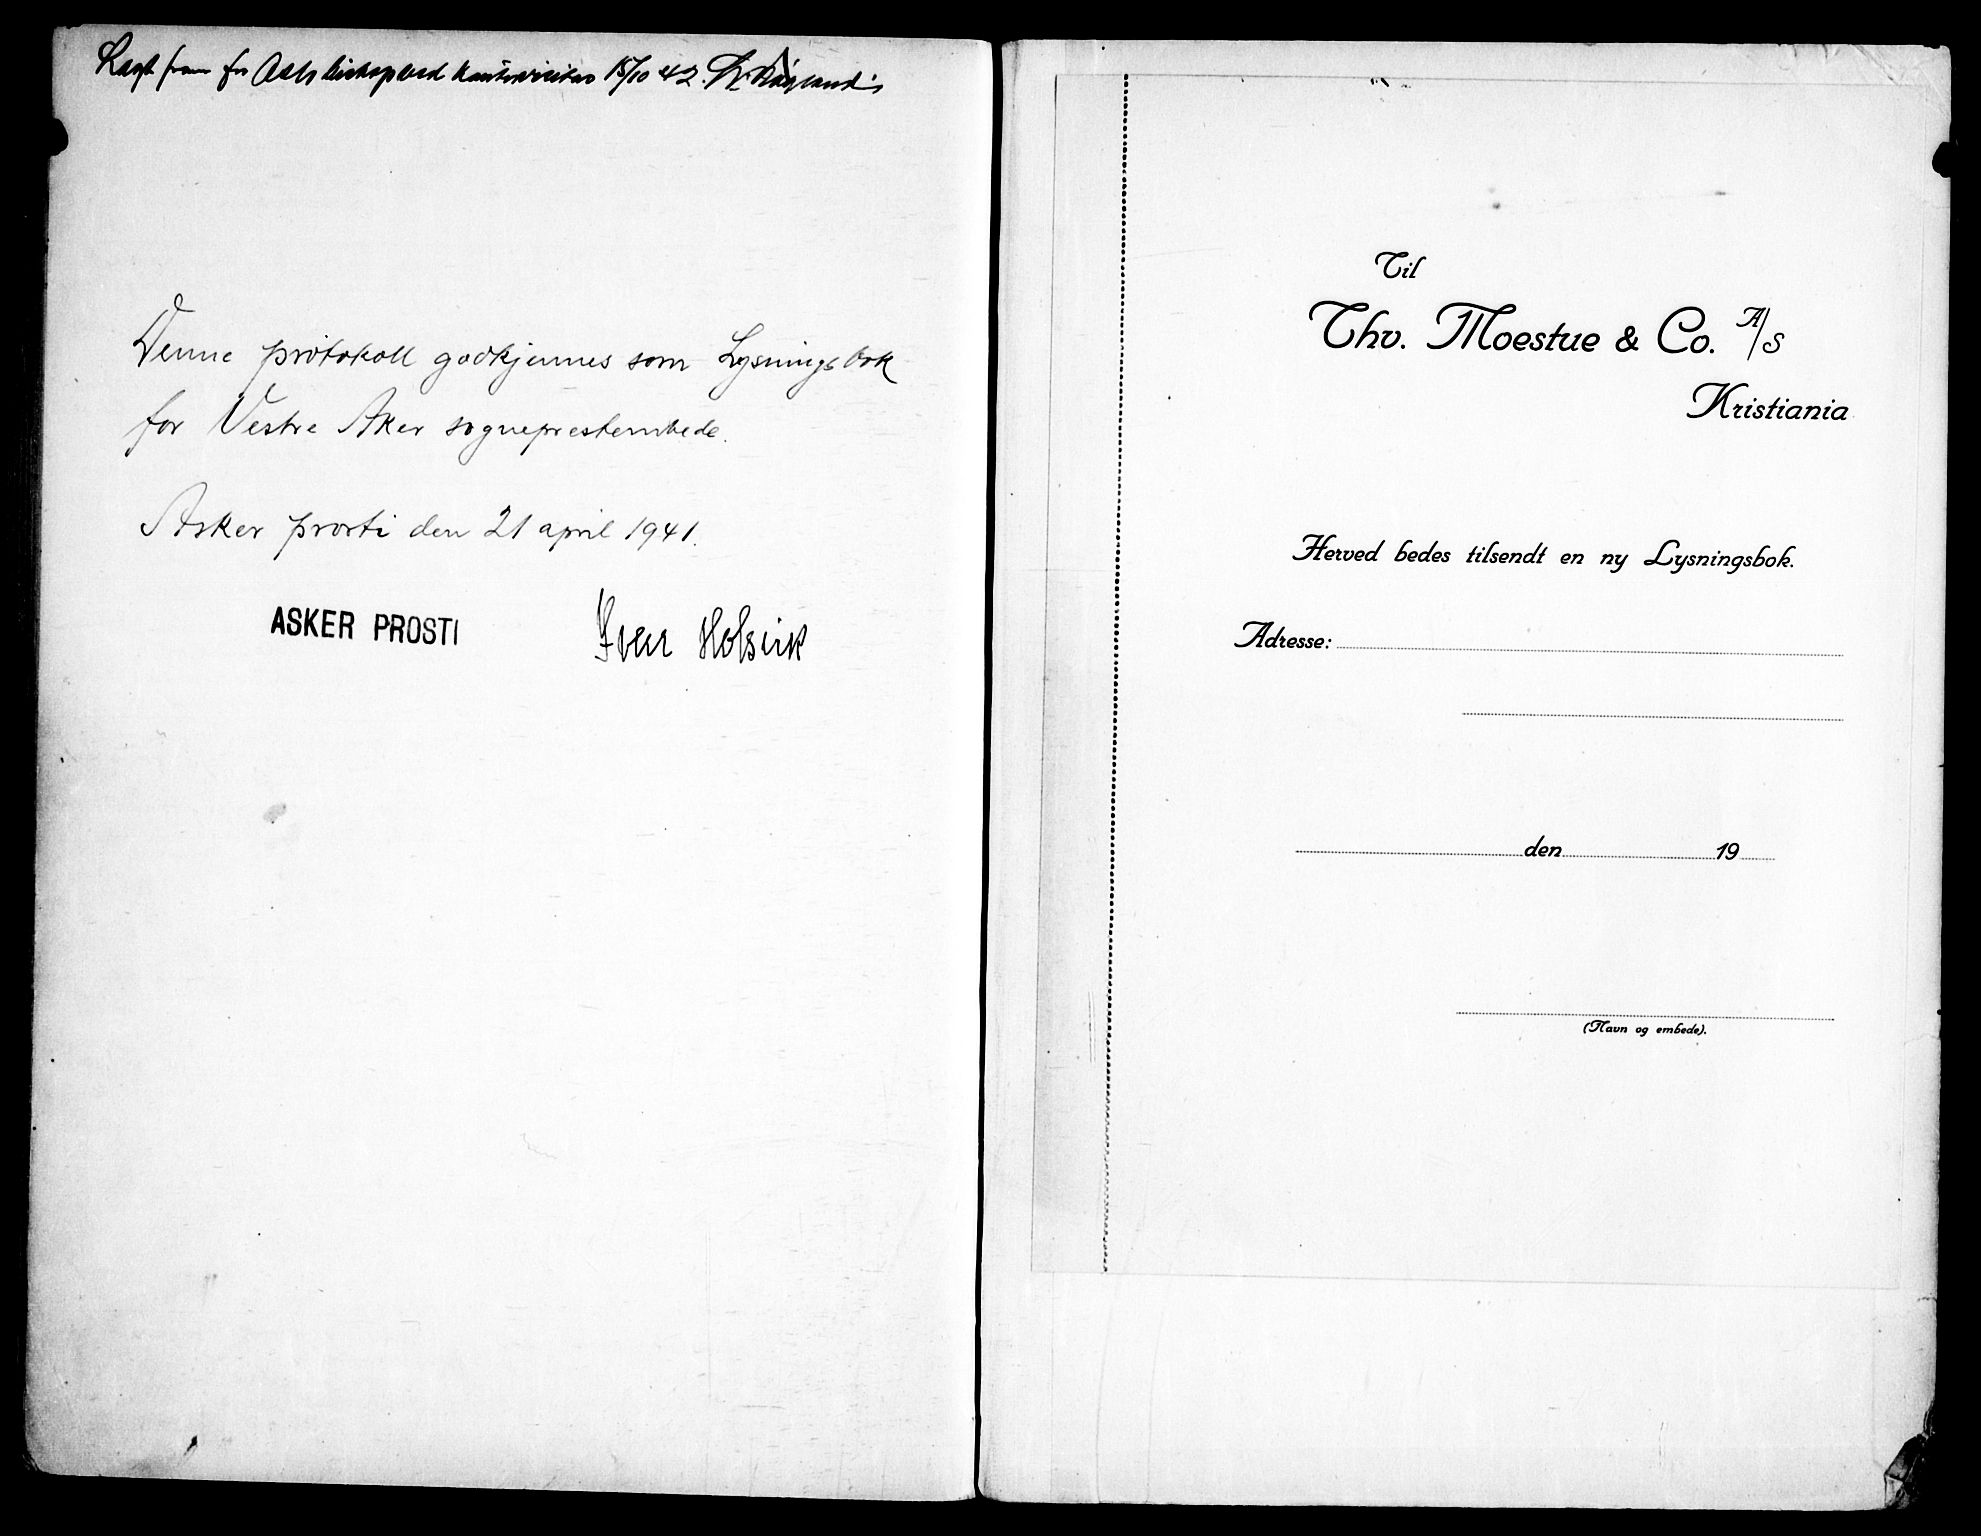 Lagt fram for Oslo biskop ved kontorvisitas 15/10 42.
Denne protokoll godkjennes som Lysningsbok
for Vestre Aker sogneprestembede.
Asker prosti den 21 april 1941.
ASKER PROSTI
Iver
Til
Thv. Moestue & Co. A/S
Kristiania
Herved bedes tilsendt en ny Lysningsbok.
Adresse:
den 19
(Navn og embede).